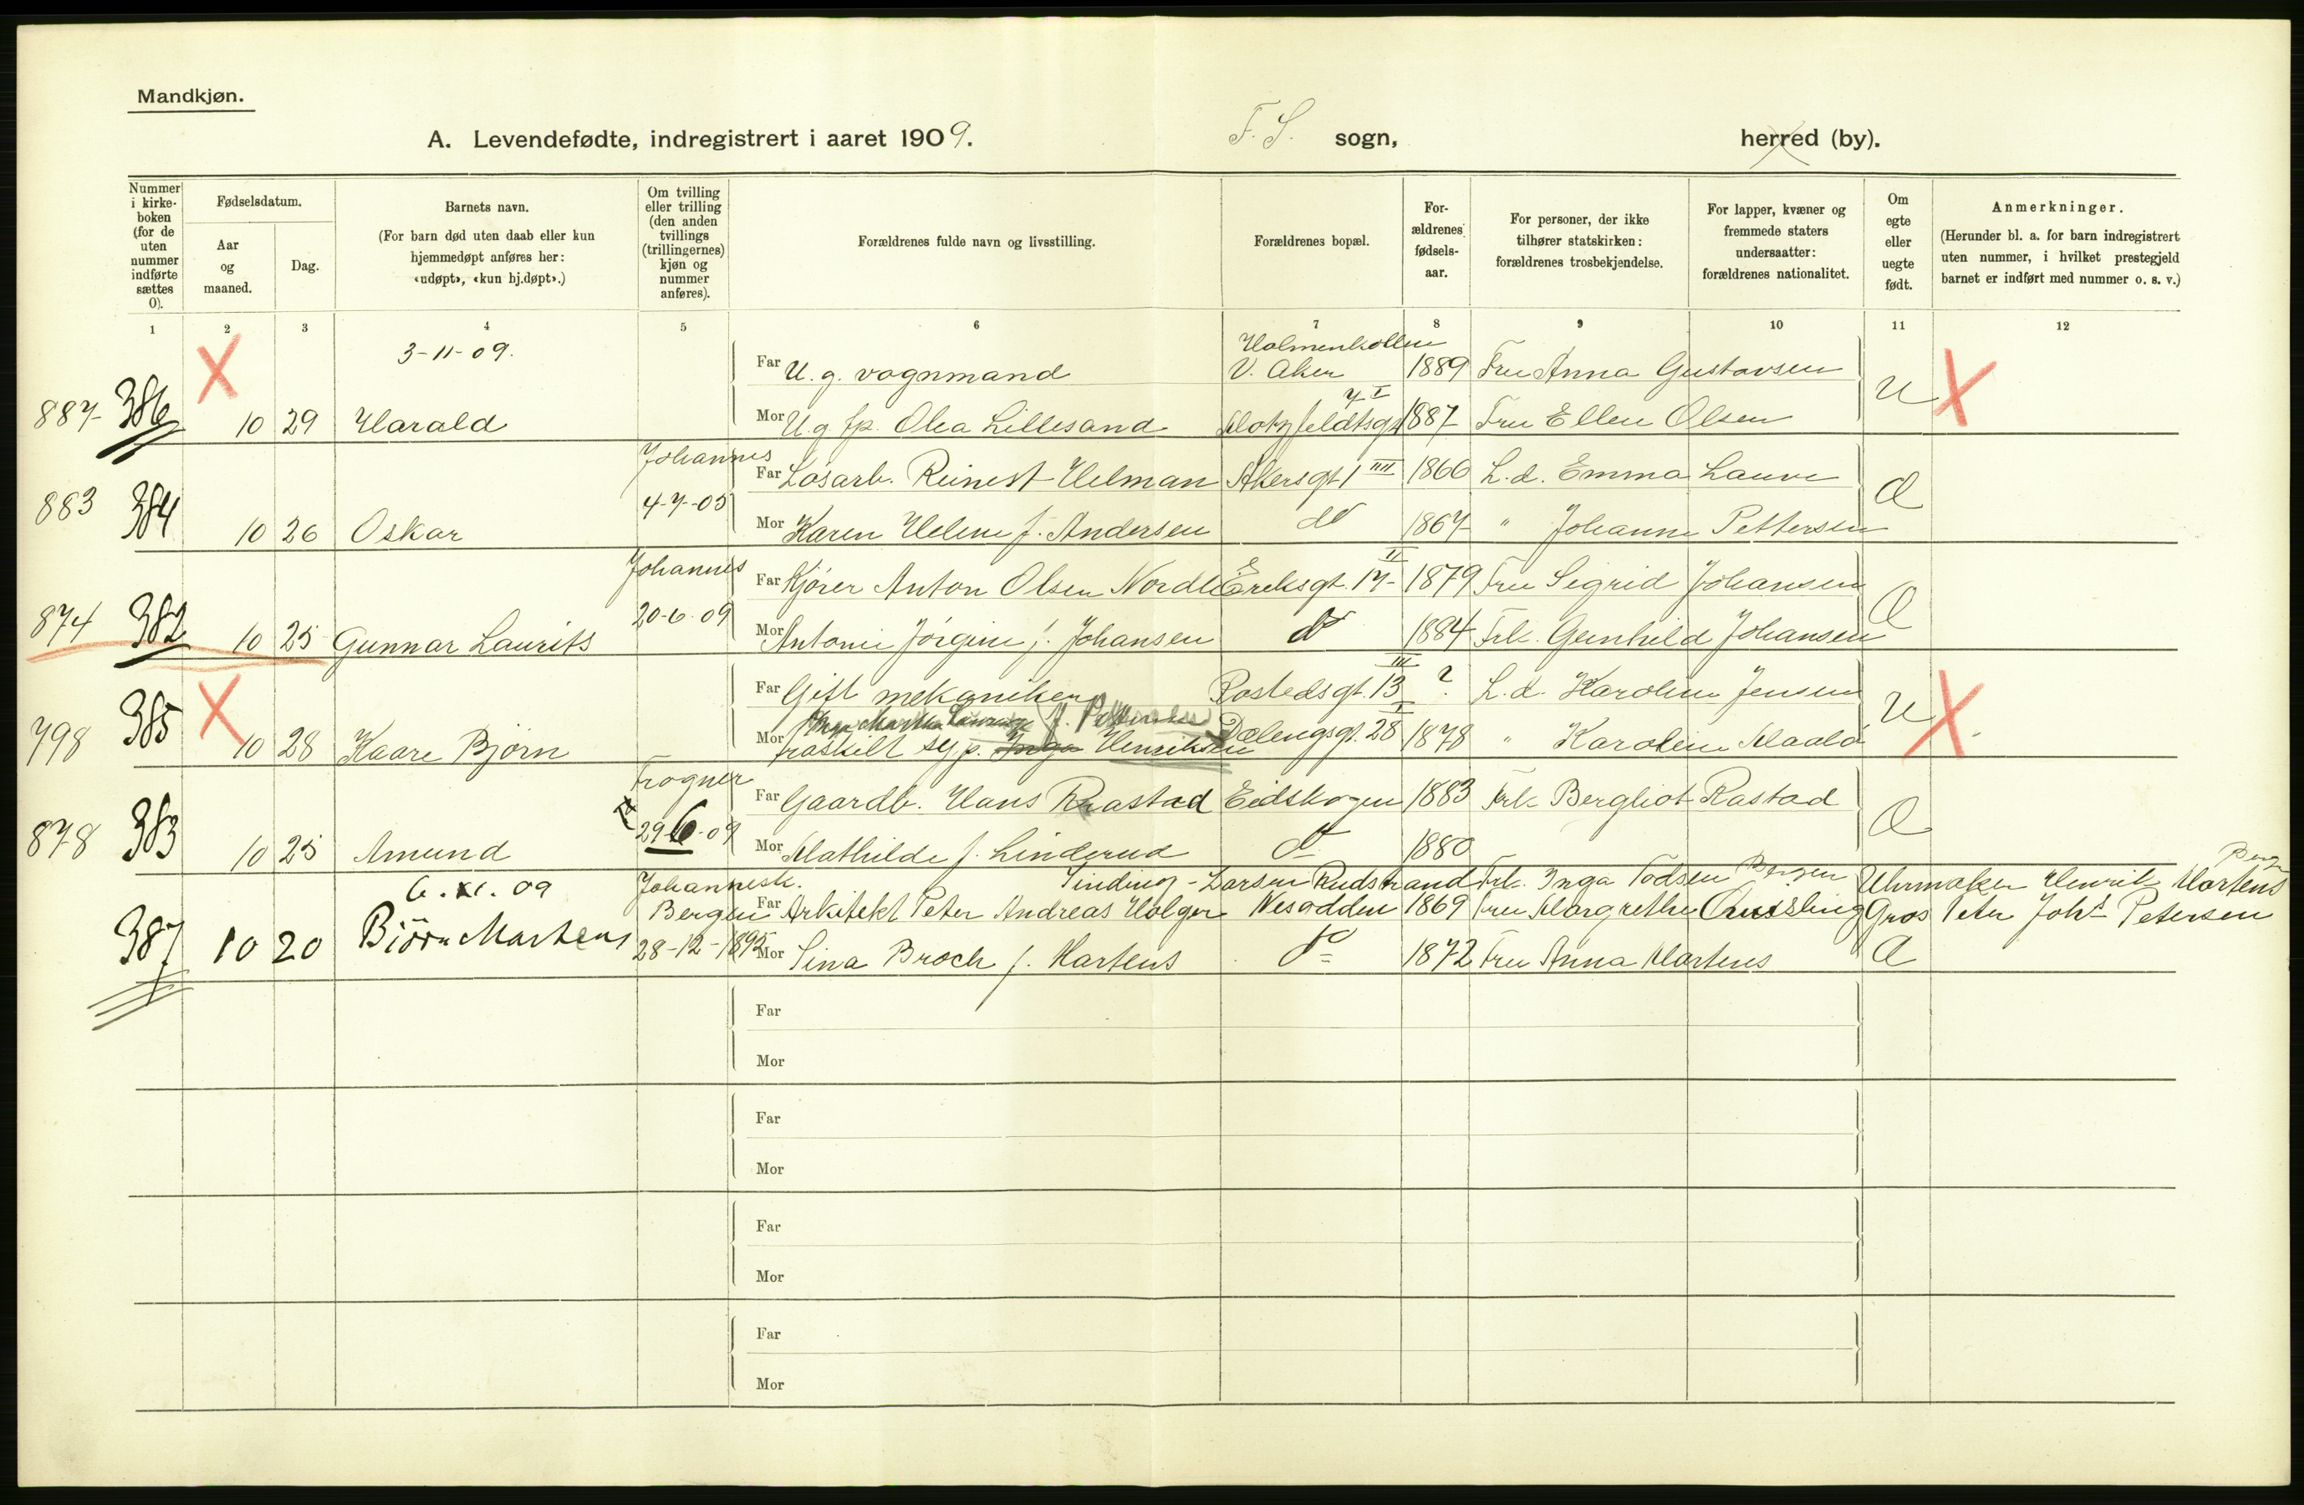 Mandkjøn.
A. Levendefødte, indregistrert i aaret 1909. F. S. sogn, herred (by).
Nummer i kirke-boken (for de uten nummer indførte sættes 0).
Fødselsdatum.
Aar og maaned.
Dag.
Barnets navn.
(For barn død uten daab eller kun hjemmedøpt anføres her: «udøpt», «kun hj.døpt».)
Om tvilling eller trilling (den anden tvillings (trillingernes) kjøn og nummer anføres).
Forældrenes fulde navn og livsstilling.
Forældrenes bopæl.
For-ældrenes fødsels-aar.
For personer, der ikke tilhører statskirken: forældrenes trosbekjendelse.
For lapper, kvæner og fremmede staters undersaatter: forældrenes nationalitet.
Om egte eller uegte født.
Anmerkninger.
(Herunder bl. a. for barn indregistrert uten nummer, i hvilket prestegjeld barnet er indført med nummer o. s. v.)
1 2 3 4 5 6 7 8 9 10 11 12
3-11-09.
Holmenkollen
Far U. g. vognmand V. Aker 1889 Fru Anna Gustavsen U
887 386 10 29 Harald Mor Ug fp. Olea Lillesand 1887 Fru Ellen Olsen
Johannes Far Løsarb. Reinert Helman Akersgt 1 IIII 1866 L.d. Emma Lauve
883 384 10 26 Oskar 4-7-05 Mor Karen Helene f. Andersen do 1867 " Johanne Pettersen
Johannes Far Kjører Anton Olsen Nordli Eriksgt. 17 II 1879 Fru Sigrid Johansen
874 382 10 25 Gunnar Laurits 20-6-09 Mor Antonie Jørgine f. Johansen do 1884 Frk. Gunhild Johansen
Far Gift mekaniker Rostedsgt. 13 III ? L.d. Karoline Jensen U
Inga Martha f. Pettersen
798 385 10 28 Kaare Bjørn Mor fraskilt syp. Inga Henriksen Dælengsgt. 28 I 1878 " Karoline
Frogner Far Gaardb. Hans Rastad Eidskogen 1883 Frk Bergliot Rastad
878 383 10 25 Amund 29-6-09 Mor Mathilde f. Linderud do 1880
6. XI. 09 Johannesk. Sinding-Larsen Rudstrand Frk. Inga Todsen Bergen Uhrmaker Henrik Martens
Bergen Far Arkitekt Peter Andreas Holger Nesodden 1869 Fru Margrethe Gros Peter Johs Petersen
387 10 20 Bjørn Martens 28-12-1895 Mor Sina Broch f. Martens do 1872 Fru Anna Martens
Far
Mor
Far
Mor
Far
Mor
Far
Mor